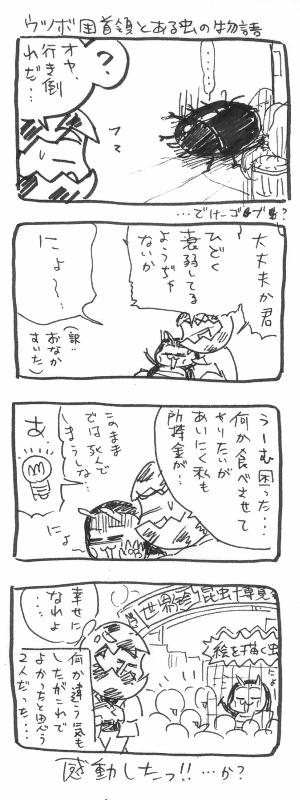 ウツボ国首領とある虫の物語
?
オヤ、
行き倒
れだ…
……
…でけーゴ●ブ●?
大丈夫か君
ひどく
衰弱してる
ようぢゃ
ないか
にょ〜…
(訳:
おなか
すいた)
うーむ困った…
何か食べさせて
やりたいが
あいにく私も
所持金が…
このまま
では死んで
まうしな…
あ.
にょ
世界珍昆虫博覧
絵を描く虫
にょ
幸せに
なれよ
…
何か違う気も
したがこれで
よかったと思う
2人だった…
感動したっ!!…か?